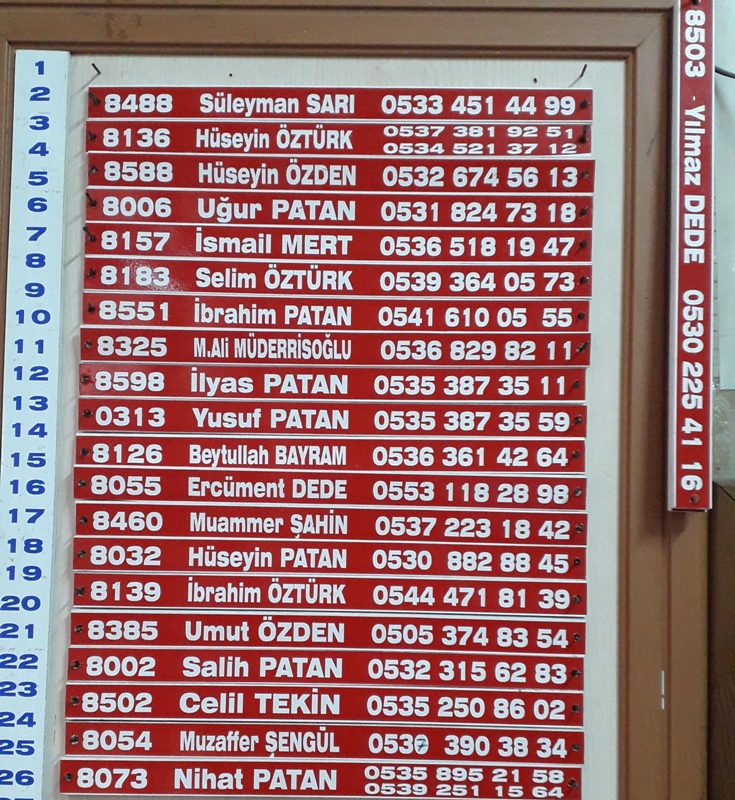 1
2
3
4
5
6
7
8
9
10
11
12
13
14
15
16
17
18
19
20
21
22
23
24
25
26
8488 Süleyman SARI 0533 451 44 99
8136 Hüseyin ÖZTÜRK 0537 381 92 51
0534 521 37 12
8588 Hüseyin ÖZDEN 0532 674 56 13
8006 Uğur PATAN 0531 824 73 18
8157 İsmail MERT 0536 518 19 47
8183 Selim ÖZTÜRK 0539 364 05 73
8551 İbrahim PATAN 0541 610 05 55
8325 M.Ali MÜDERRİSOĞLU 0536 829 82 11
8598 İlyas PATAN 0535 387 35 11
0313 Yusuf PATAN 0535 387 35 59
8126 Beytullah BAYRAM 0536 361 42 64
8055 Ercüment DEDE 0553 118 28 98
8460 Muammer ŞAHİN 0537 223 18 42
8032 Hüseyin PATAN 0530 882 88 45
8139 İbrahim ÖZTÜRK 0544 471 81 39
8385 Umut ÖZDEN 0505 374 83 54
8002 Salih PATAN 0532 315 62 83
8502 Celil TEKİN 0535 250 86 02
8054 Muzaffer ŞENGÜL 390 38 34
8073 Nihat PATAN 0535 895 21 58
0539 251 15 64
8503 Yılmaz DEDE 0530 225 41 16